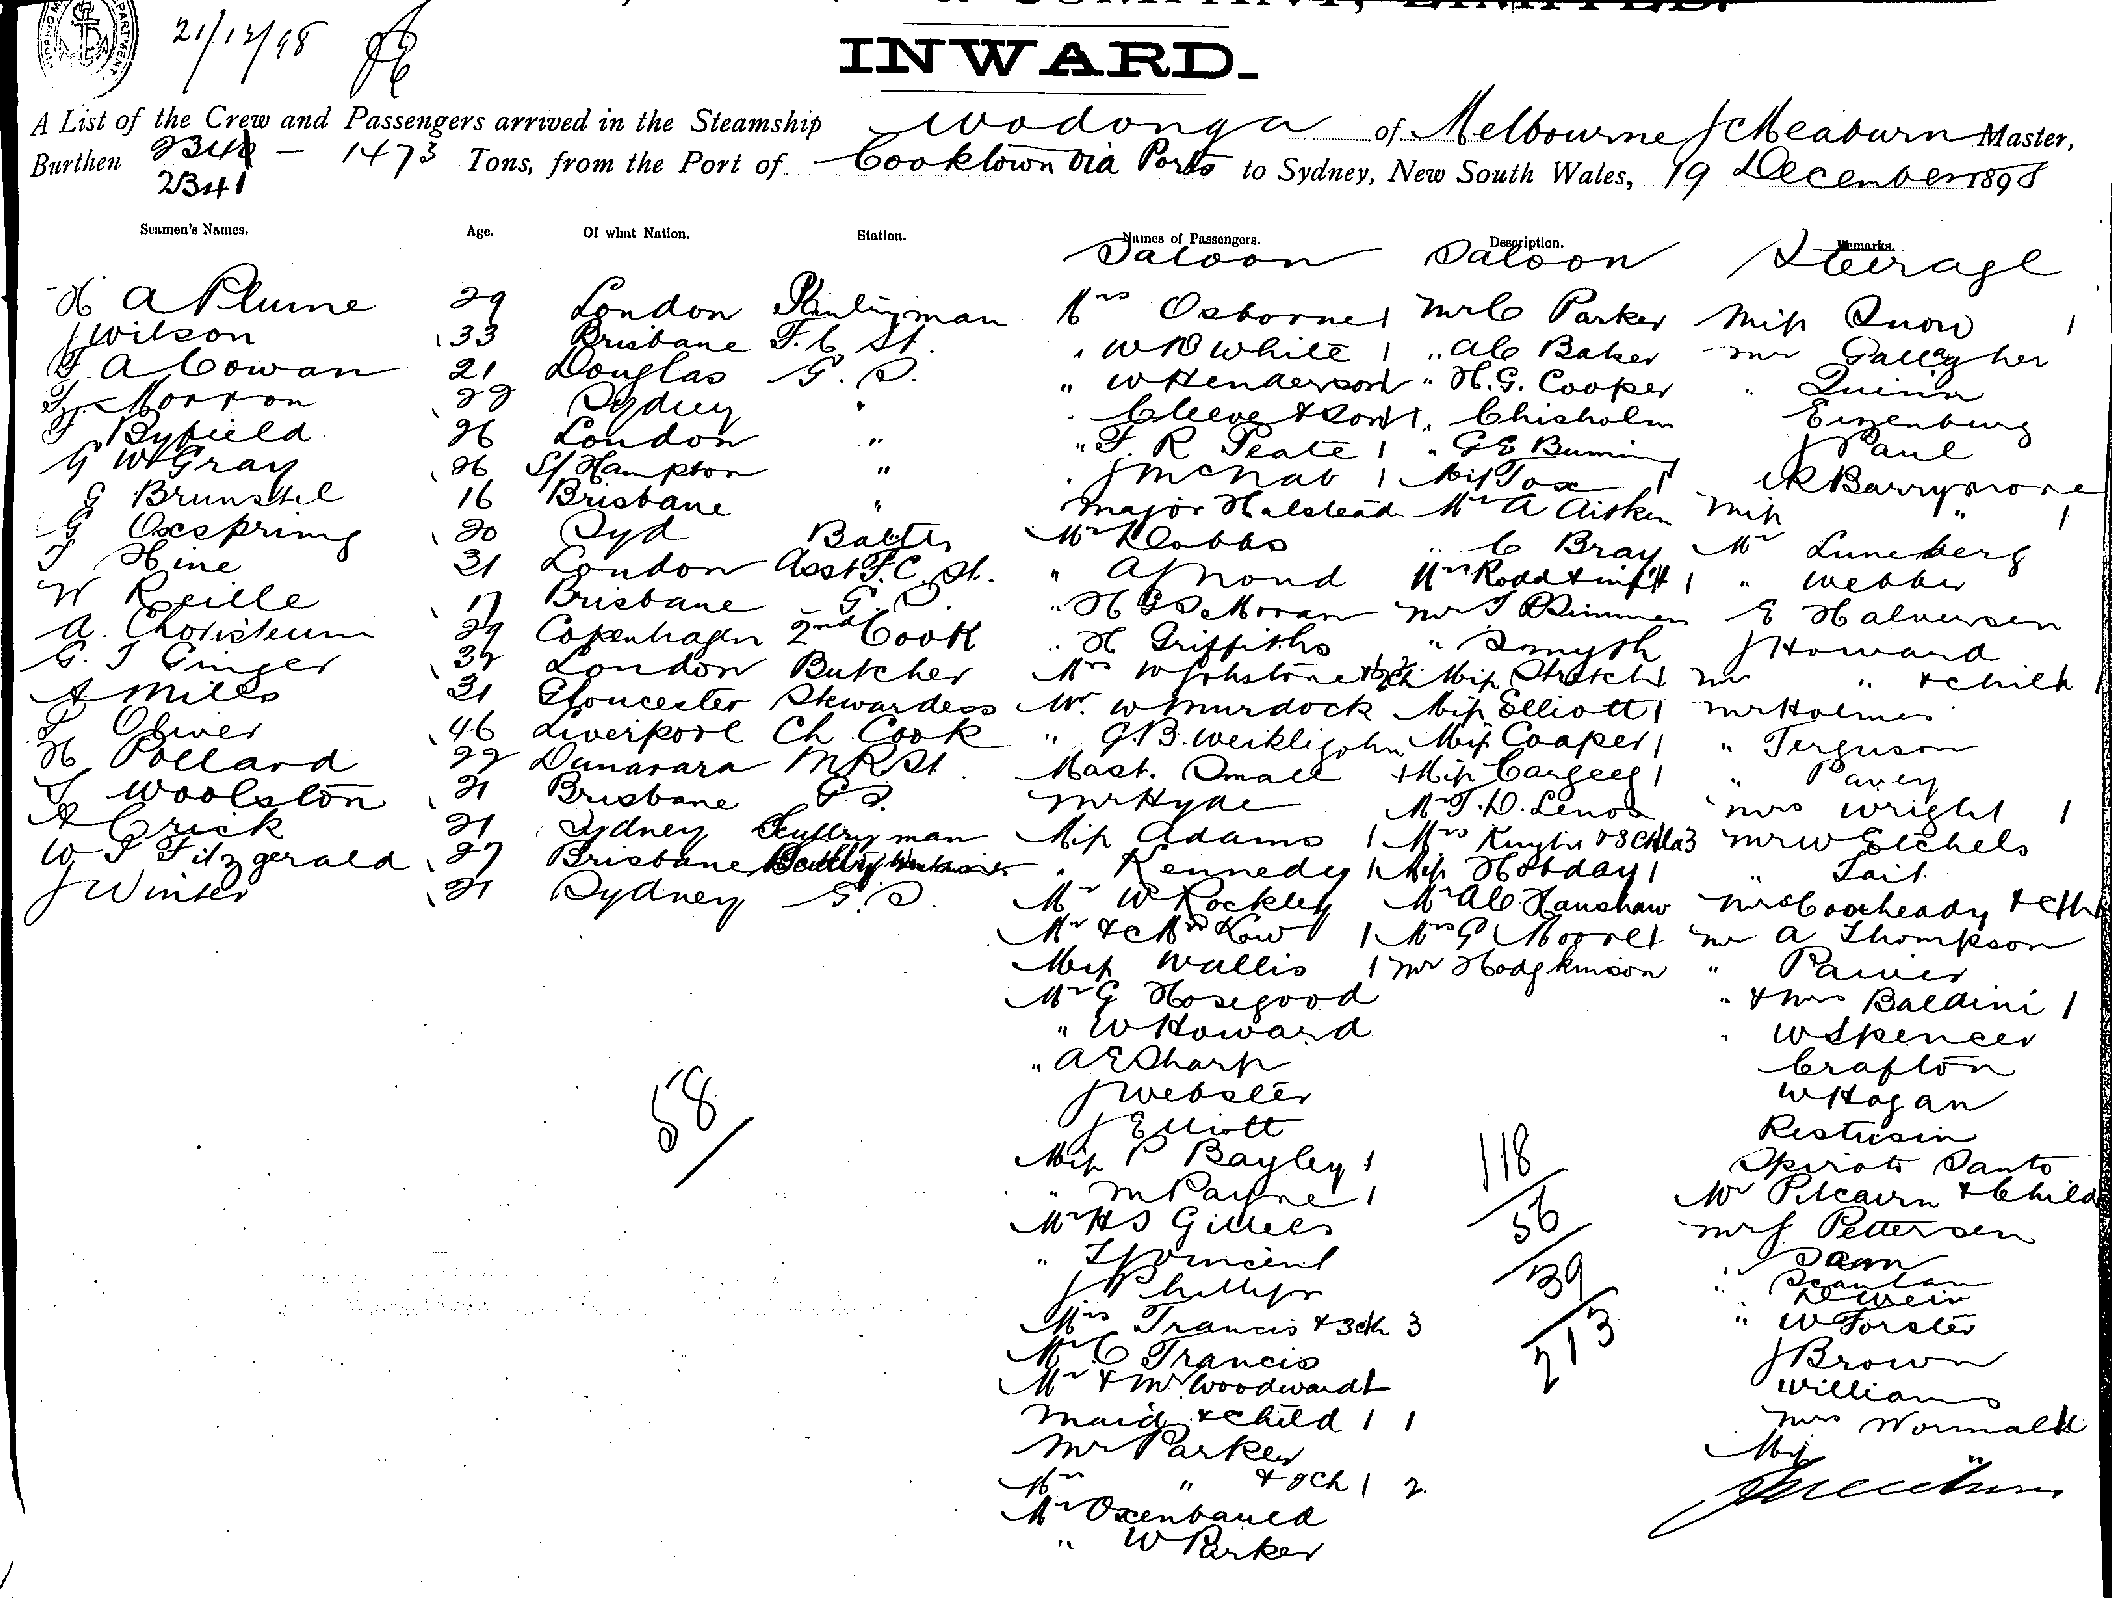 21/12/98
INWARD.
A List of the Crew and Passengers arrived in the Steamship Wodonga of Melbourne J Meaburn Master,
Burthen 2341 — 1473 Tons, from the Port of Cooktown via Ports to Sydney, New South Wales, 19 December 1898
2341
Seamen's Names. Age. Of what Nation. Station. Names of Passengers. Description. Remarks.
Saloon Saloon Steerage
H A Plume 29 London Pantryman
J Wilson 33 Brisbane F. C St.
F A Cowan 21 Douglas G. S.
Morron 22 Sydney "
F Byfield 26 London "
G W Gray 26 S/Hampton "
G Brunskil 16 Brisbane "
G Oxspring 20 Syd
T Hine 31 London Asst F. C. St.
W 17 Brisbane G S.
A. 29 Copenhagen 2nd Cook
G. T Ginger 32 London Butcher
A Mills 31 Gloucester Stewardess
P Oliver 46 Liverpool Ch Cook
H Pollard 22 M R St
S Woolston 21 Brisbane G S.
A Crick 21 Sydney Scullryman
W T Fitzgerald 27 Brisbane
J Winter 21 Sydney G. S.
58
Mrs Osborne 1
" W B White 1
" W Henderson 1
" Cleeve & Son 1
" F. R Peate 1
" J McNab 1
Major Halstead
Mr Dobbs
" A J Nond
" H G S Moran
" H Griffiths
Mrs W Johstone
Mr. W Murdock
" G B.
Mast. Small
Mr Hyde
Miss Adams 1
" Kennedy 1
Mr W Rockley
Mr & Mrs Low 1
Miss Wallis 1
Mr G Hosegood
" W Howard
" A E Sharp
J Webster
J Elliott
Miss P Bayley 1
" M Payne 1
Mr H S Gillies
" Vincent
J Phillips
Mrs Francis & 3 ch 3
Mr C Francis
Mr & Mrs Woodward 1
Maid & child 1 1
Mr Parker
Mrs " & 2 ch 1 2
Mr
" W Parker
Mr C Parker
" A C Baker
" H. G. Cooper
" Chisholm
" G E
Miss Fox 1
Mr A Aitken
" C Bray
Mrs Rodd & inft 1
Mr
" Smyth
Miss Stretch 1
Miss Elliott 1
Miss Cooper 1
& Miss Cargeeg 1
Mr F. D. Lenox
Mrs & 3 ch 1 3
Miss Hobday 1
Mr A C Hanshaw
Mrs G Moore 1
Mr Hodgkinson
118
56
39
213
Miss Snow 1
Mr Gallagher
" Quinn
Eizenburg
J Paul
Barrymore
Miss " 1
Mr Luneberg
" Webber
E Halversen
J Howard
Mrs " & child 1
Mr Holmes
" Ferguson
" Pavey
Mrs Wright 1
Mr W Etchels
" Tait
Mrs
Mr A Thompson
"
" & Mrs Baldini 1
" W Spencer
Crafton
W Hogan
Spirito Santo
Mr Pitcairn & Child
Mr J Pettersen
"
" Scanlan
" W Forster
J Brown
Williams
Mrs Wormald 1
Miss "